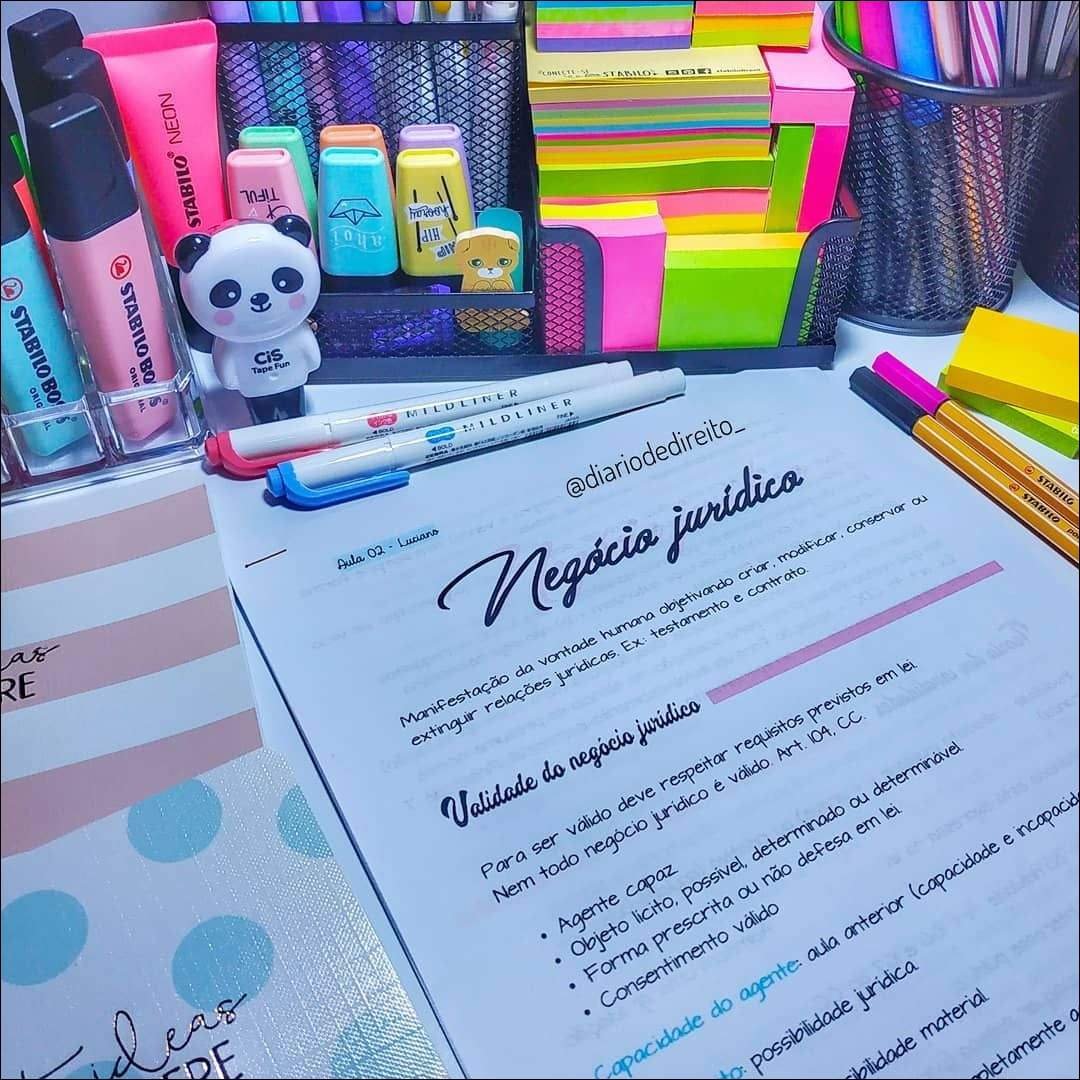 CONECTE-SE
STABILO
STABILO® NEON
TIFUL
ahoi
HIP
hooray
STABILO BOSS
ORIGINAL
STABILO BOSS
ORIGINAL
CiS
Tape Fun
MILDLINER
BOLD
MILDLINER
BOLD
FINE
STABILO
STABILO
@diariodedireito_
Aula 02 - Luciano
Negócio jurídico
Manifestação da vontade humana objetivando criar, modificar, conservar ou
extinguir relações jurídicas. Ex.: testamento e contrato.
Validade do negócio jurídico
Para ser válido deve respeitar requisitos previstos em lei.
Nem todo negócio jurídico é válido. Art. 104, CC.
• Agente capaz
• Objeto lícito, possível, determinado ou determinável
• Forma prescrita ou não defesa em lei
• Consentimento válido
Capacidade do agente: aula anterior (capacidade e incapacida
possibilidade jurídica
material
RE
ideas